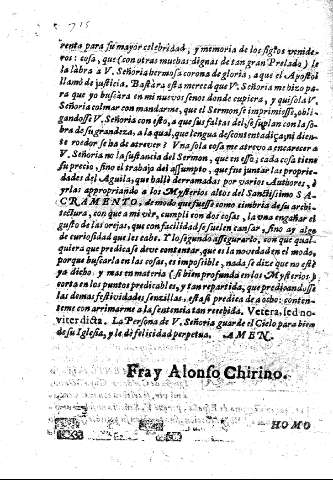 715
renta para su mayor celebridad, y memoria de los siglos venide-
ros: cosa, que (con otras muchas dignas de tan gran Prelado) le
labra a V. Señoria hermosa corona de gloria, a que el Apostol
llamó de justicia. Bastàra esta merced que V. Señoria me hizo pa-
ra que yo buscàra en mi nuevos senos donde cupiera, y quisola V.
Señoria colmar con mandarme, que el Sermon se imprimiesse, obli-
gandosse V. Señoria con esto, a que sus faltas del se suplan con la so-
bra de su grandeza, a la qual, que lengua descontentadiça, ni dien-
te roedor se ha de atrever? Vna sola cosa me atrevo a encarecer a
V. Señoria no la sustancia del Sermon, que en esso; cada cosa tiene
su precio, sino el trabajo del assumpto, que fue juntar las proprie-
dades del Aguila, que hallè derramadas por varios Authores, è
yrlas appropriando a los Mysterios altos del Santissimo SA-
CRAMENTO, de modo que fuesse como cimbria de su archi-
tectura, con que a mi ver, cumplì con dos cosas, la vna engañar el
gusto de las orejas, que con facilidad se suelen cansar, sino ay algo
de curiosidad que les cabe. Y lo segundo assegurarlo, con que qual-
quiera que predica se deve contentar, que es la novedad en el modo,
porque buscarla en las cosas, es impossible, nada se dize que no estè
ya dicho: y mas en materia (si bien profunda en los Mysterios)
corta en los puntos predicables, y tan repartida, que predicandosse
las demas festividades senzillas, esta si predica de a ocho: conten-
teme con arrimarme a la sentencia tan recebida, Vetera, sed no-
viter dicta. La Persona de V. Señoria guarde el Cielo para bien
de su Iglesia, y le dè felicidad perpetua. AMEN.
Fray Alonso Chirino.
HOMO